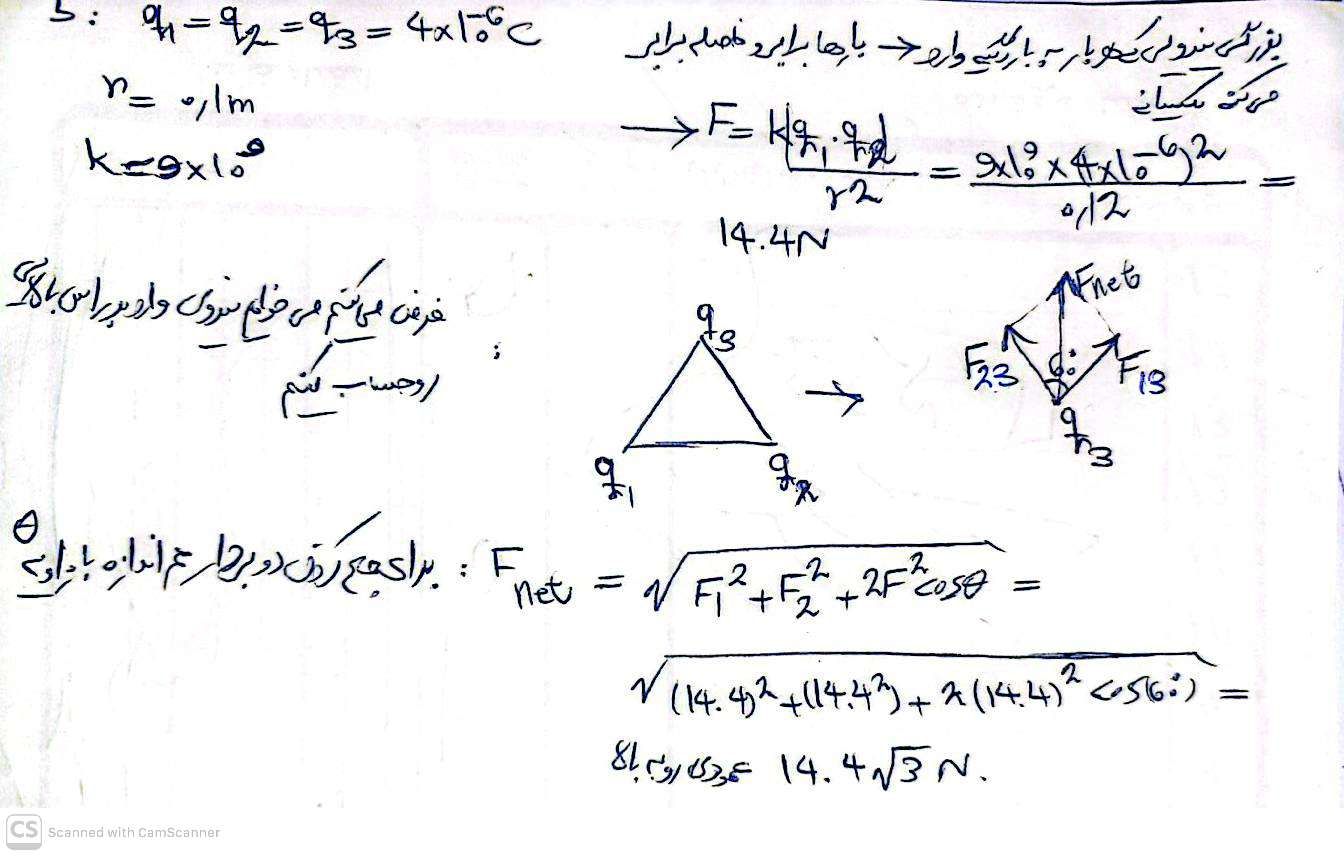 5: q₁ = q₂ = q₃ = 4×10⁻⁶ C
r = 0,1m
k = 9×10⁹
بزرگی نیرویی که هر بار به بار دیگر وارد → بارها برابر و فاصله برابر
می کنه یکسانه
→ F = k|q₁.q₂| / r² = 9×10⁹ × (4×10⁻⁶)² / 0,1² =
14.4N
فرض می کنیم می خوایم نیروی وارد بر راس بالایی
رو حساب کنیم :
q₃
q₁ q₂
→
Fnet
F₂₃ 60° F₁₃
q₃
برای جمع کردن دو بردار هم اندازه با زاویه θ : Fnet = √(F₁² + F₂² + 2F² cosθ) =
√((14.4)² + (14.4²) + 2(14.4)² cos60°) =
14.4√3 N. عمودی رو به بالا
CS Scanned with CamScanner